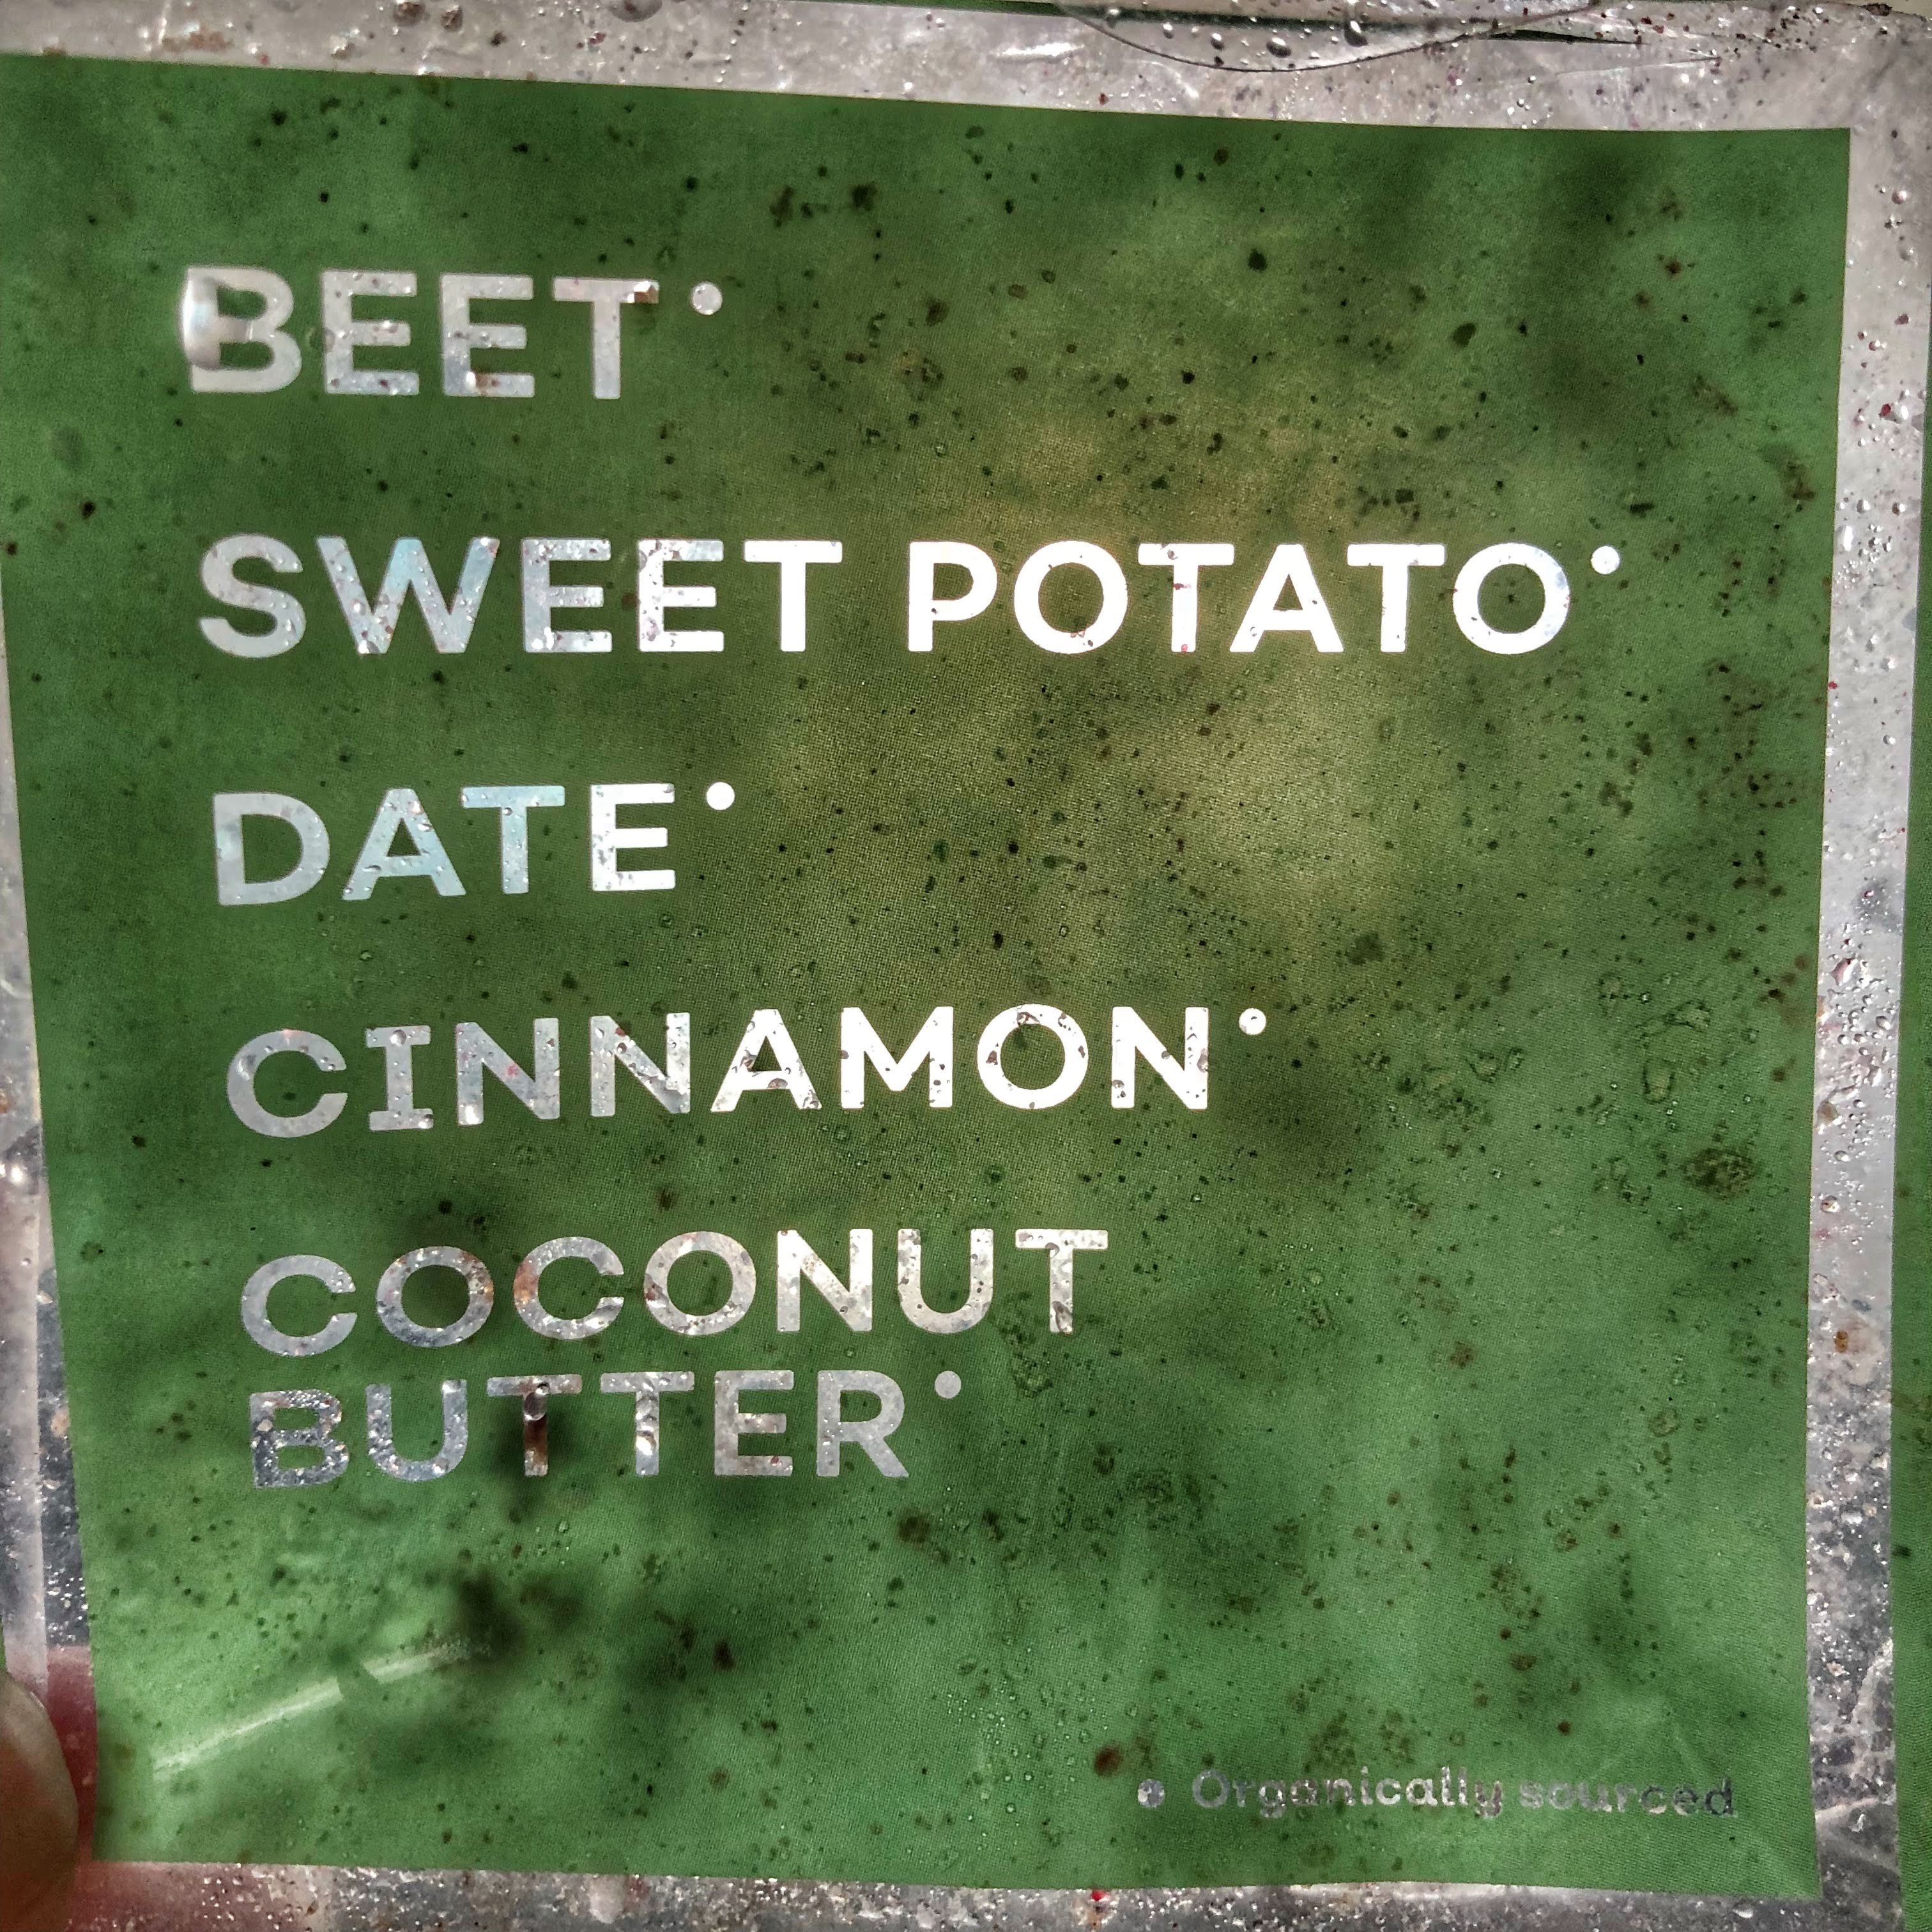 BEET•
SWEET POTATO•
DATE•
CINNAMON•
COCONUT
BUTTER•
• Organically sourced